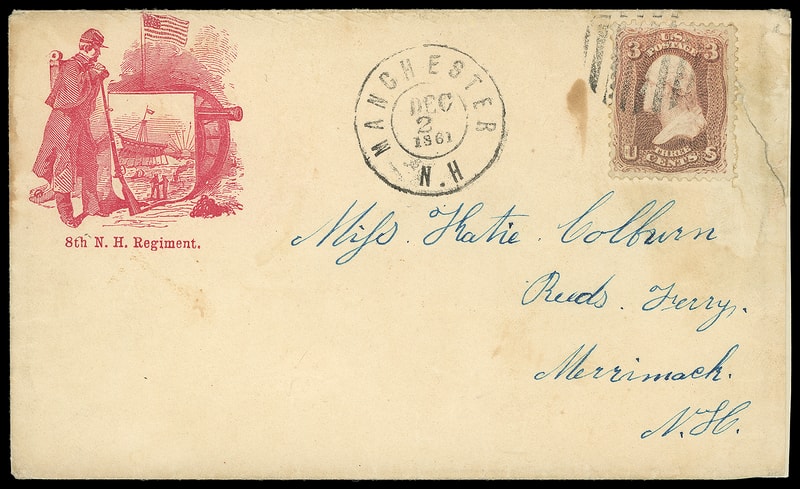 MANCHESTER
DEC
2
1861
N.H
3 U.S. 3
POSTAGE
U THREE S
CENTS
8th N. H. Regiment.
Miss. Katie. Colburn
Reeds. Ferry.
Merrimack.
N.H.